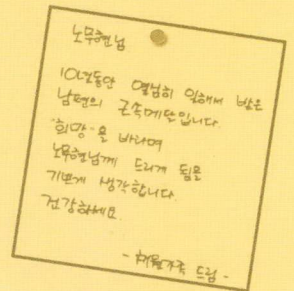 노무현님
10년동안 열심히 일해서 받은
남편의 근속메달입니다.
"희망"을 바라며
노무현님께 드리게 됨을
기쁘게 생각합니다
건강하세요.
드림 -